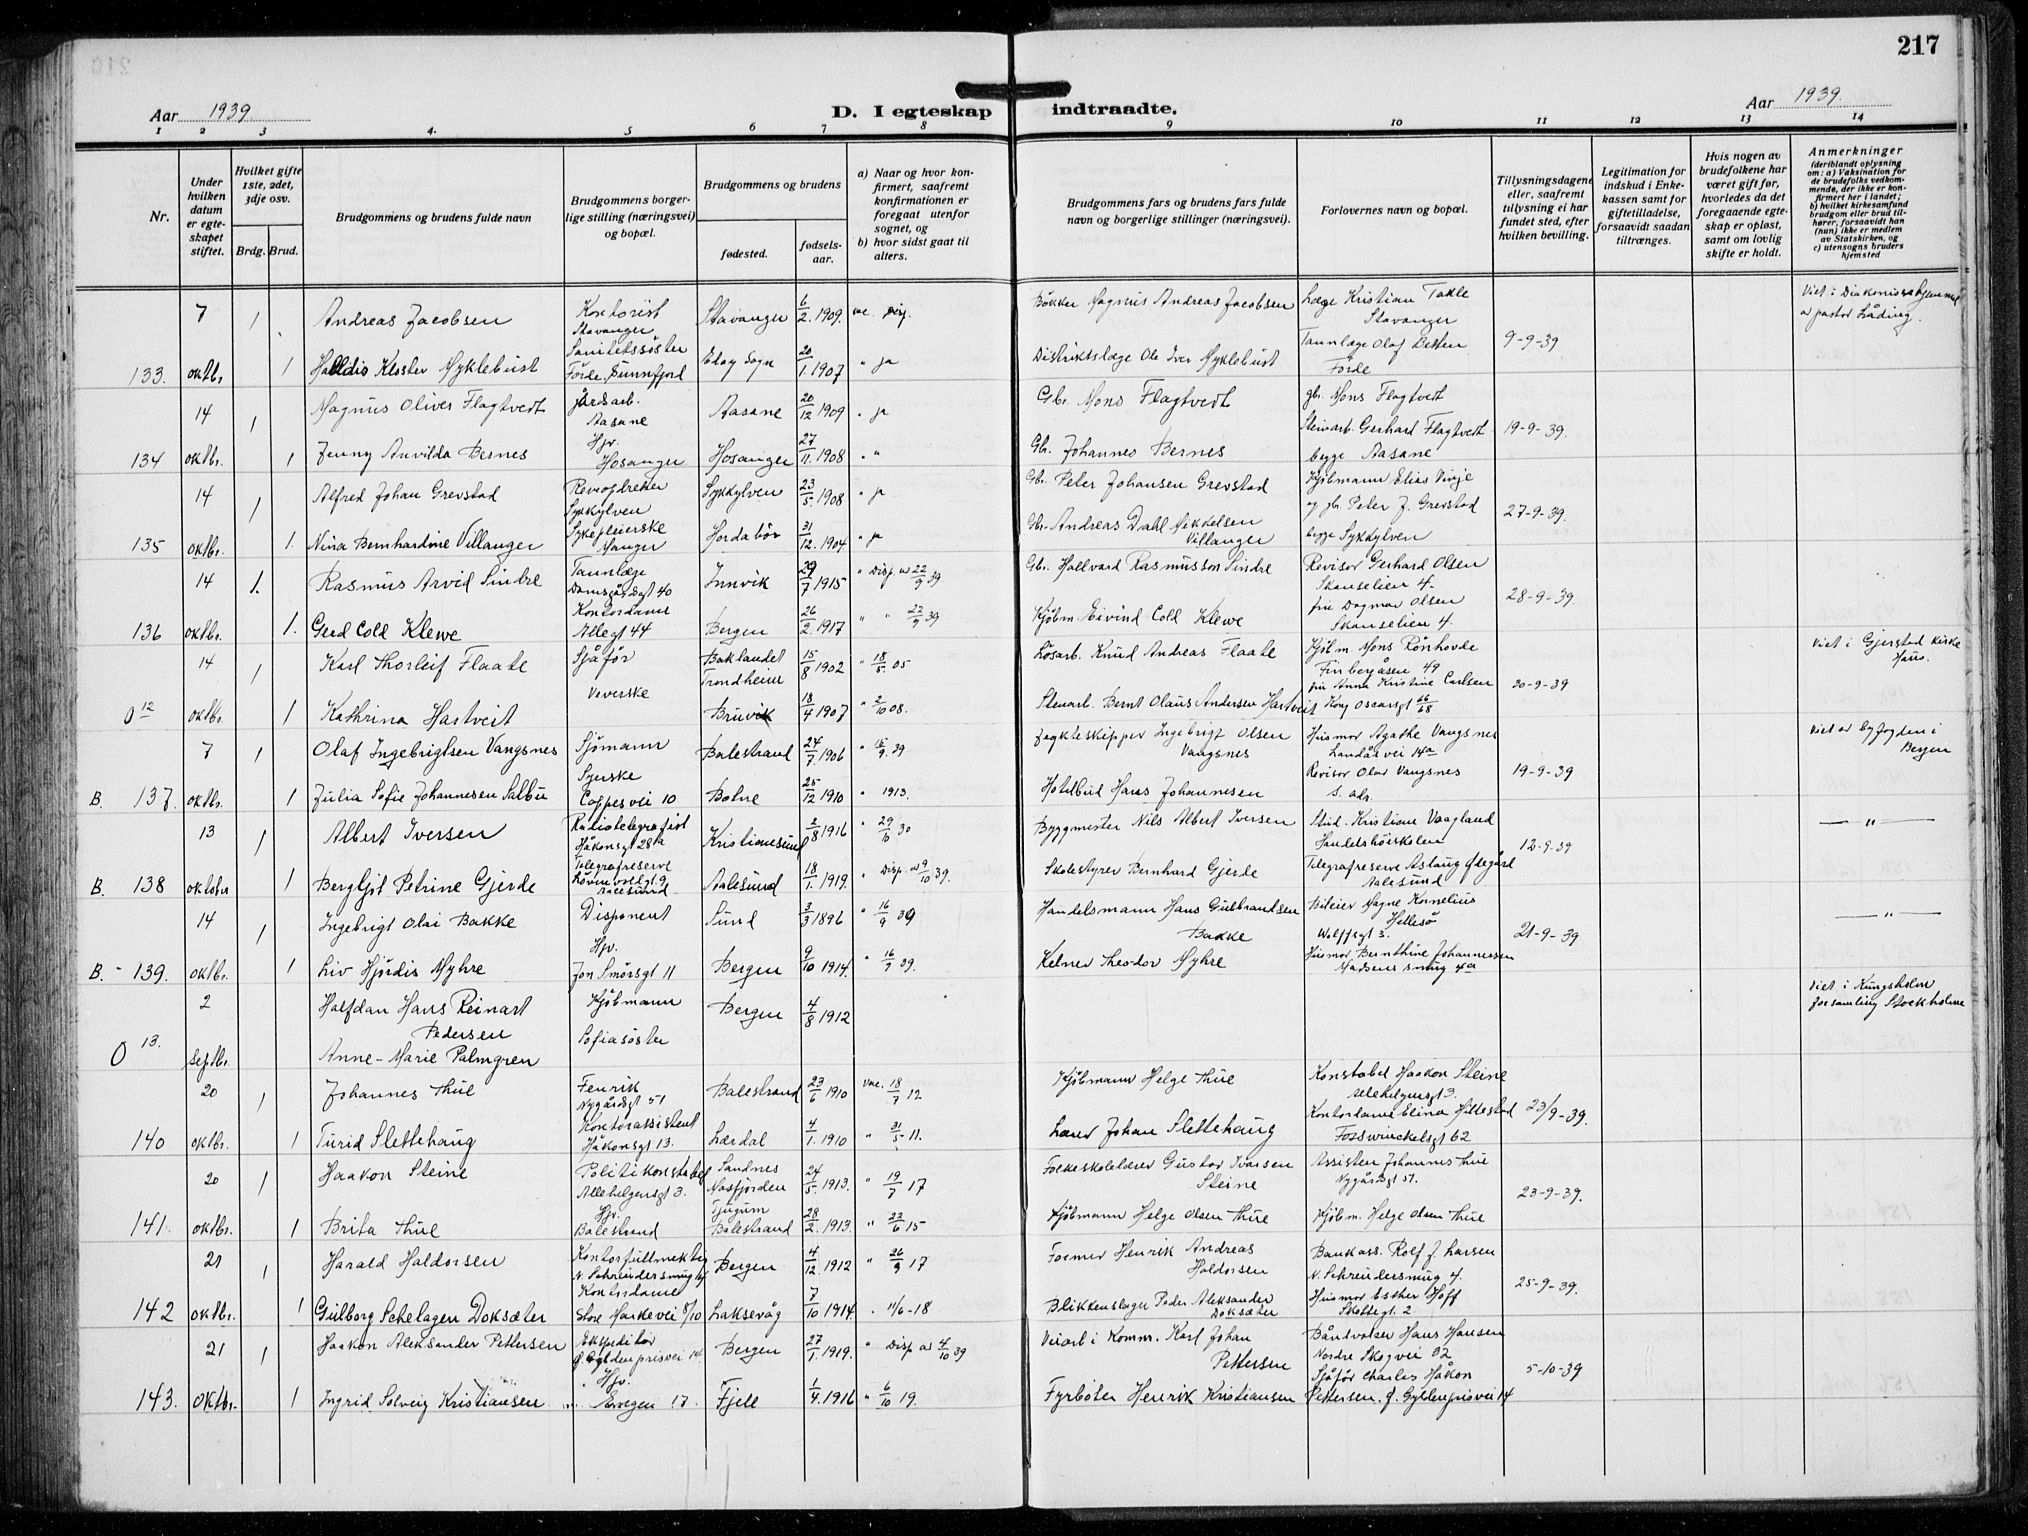 217
Aar 1939.
D. I egteskap indtraadte.
Aar 1939.
1 2 3 4. 5 6 7 8 9 10 11 12 13 14
Nr.
Under hvilken datum er egteskapet stiftet.
Hvilket gifte 1ste, 2det, 3dje osv.
Brdg. Brud.
Brudgommens og brudens fulde navn
Brudgommens borgerlige stilling (næringsvei) og bopæl.
Brudgommens og brudens
fødested.
fødselsaar.
a) Naar og hvor konfirmert, saafremt konfirmationen er foregaat utenfor sognet, og
b) hvor sidst gaat til alters.
Brudgommens fars og brudens fars fulde navn og borgerlige stillinger (næringsvei).
Forlovernes navn og bopæl.
Tillysningsdagene eller, saafremt tillysning ei har fundet sted, efter hvilken bevilling.
Legitimation for indskud i Enkekassen samt for giftetilladelse, forsaavidt saadan tiltrænges.
Hvis nogen av brudefolkene har været gift før, hvorledes da det foregaaende egteskap er opløst, samt om lovlig skifte er holdt.
Anmerkninger
(deriblandt oplysning om: a) Vaksination for de brudefolks vedkommende, der ikke er konfirmert her i landet; b) hvilket kirkesamfund brudgom eller brud tilhører, forsaavidt han (hun) ikke er medlem av Statskirken, og c) utensogns bruders hjemsted
7 1 Andreas Jacobsen Kontorist Stavanger Stavanger 6/2 1909. vac. Bøkker Magnus Andreas Jacobsen Læge Kristian Takle Stavanger Viet i Diakonissehjemmet av pastor Låding.
133. oktbr 1 Halldis Kloster Myklebust Sanitetssøster Førde, Sunnfjord Sogn 20/1. 1907 " ja Distriktslæge Ole Iver Myklebust Tannlæge Olaf Førde 9-9-39
14 1 Magnus Oliver Flagtvedt Jordsarb. Aasane Aasane 20/12 1909 " ja Gbr. Mons Flagtvedt gbr. Mons Flagtvedt
134 oktbr. 1 Jenny Anvilda Bernes Hjv. Hosanger Hosanger 27/11. 1908 " " Gbr. Johannes Bernes Steinarb. Gerhard Flagtvedt begge Aasane 19-9-39.
14 1 Alfred Johan Grevstad Reveopdretter Sykkylven Sykkylven 23/5. 1908 " ja Gbr. Peter Johansen Grevstad Kjøbmann Elias Vinje og gb. Peter J. Grevstad
135 oktbr. 1. Nina Bernhardine Villanger Sykepleierske Manger Hordabø 31/12. 1904. " ja Gbr. Andreas Dahl Mikkelsen Villanger begge Sykkylven 27-9-39.
14 1. Rasmus Arvid Sindre Tannlæge Damsgårdsgt 40 Innvik 29/7 1915 " Disp. av 22/9 39 Gbr. Hallvard Rasmusson Sindre Revisor Gerhard Olsen Skanselien 4.
136 oktbr. 1. Gerd Cold Klewe Kontordame Allegt 44 Bergen 26/2. 1917 " " 22/9 39 Kjøbm. Eivind Cold Klewe fru Dagmar Olsen Skanselien 4. 28-9-39.
14 1 Karl Thorleif Flaate Sjåfør Baklandet Trondheim 15/8 1902 " 18/5. 05 Løsarb. Knud Andreas Flaate Kjøbm. Mons Rønhovde Finbergåsen 49 Viet i Gjerstad kirke Haus.
O 12 oktbr. 1 Kathrina Hartveit Veverske Bruvik 18/4 1907 " 2/10 08. Stenarb. Bernt Olaus Andersen Hartveit fru Anna Kristine Carlsen Kong Oscarsgt 66/68 30-9-39
7 1 Olaf Ingebrigtsen Vangsnes Sjømann Balestrand 24/7. 1906 Jagteskipper Ingebrigt Olsen Vangsnes Husmor Agathe Vangsnes Landåsvei 14a Viet av byfogden i Bergen
B. 137. oktbr. 1 Julia Sofie Johannesen Salbu Syerske Coppesvei 10 Botne 25/12 1910 " 1913. Hotelbud Hans Johannesen Revisor Olav Vangsnes s. adr. 19-9-39
13 1 Albert Iversen Radiotelegrafist Håkonsgt 28a Kristiansund 2/8 1916 " 29/ 30 Byggmester Nils Albert Iversen Stud. Kristian Vaagland Handelshøiskolen — " —
B. 138 oktober 1 Bergljot Petrine Gjerde Telegrafreserve Aalesund Aalesund 18/1. 1919. " Disp. av 9/10 39. Skolestyrer Bernhard Gjerde Telegrafreserve Aslaug Ødegård Aalesund 12-9-39
14 1 Ingebrigt Olai Bakke Disponent Sund 3/3 1896 " 16/9 39 Handelsmann Hans Gulbrandsen Bakke Bileier Magne Kornelius Hellesø Wolffsgt 3. — " —
B. - 139. oktbr. 1 Liv Hjørdis Myhre Hjv. Jon Smørsgt 11 Bergen 9/10 1914. " 16/9 39. Kelner Theodor Myhre Husmor Bernthine Johannessen Madsens smug 4a 21-9-39
2 Halfdan Hans Reinart Pedersen Kjøbmann Bergen 4/8 1912 Viet i Kungsholm forsamling Stockholm
O 13. septbr. Anne-Marie Palmgren Sofiasøster
20 1 Johannes Thue Fenrik Nygårdsgt 51 Balestrand 23/6 1910 vac. 18/7 12 Kjøbmann Helge Thue Konstabel Haakon Steine Allehelgensgt 3.
140 oktbr. 1 Turid Slettehaug Kontorassistent Håkonsgt 13. Lærdal 4/1. 1910 " 31/5- 11. Lærer Johan Slettehaug Kontordame Elina Hillestad Fosswinckelsgt 62 23/9-39.
20 1 Haakon Steine Politikonstabel Allehelgensgt 3. Sandnes Masfjorden 24/5. 1913. " 19/7 17 Folkeskolelærer Gustav Ivarsen Steine Assistent Johannes Thue Nygårdsgt 51.
141. oktbr. 1 Brita Thue Hjv. Balestrand Tjugum Balestrand 28/2. 1913. " 22/6 15 Kjøbmann Helge Olsen Thue Kjøbm. Helge Olsen Thue 23-9-39.
21 1 Harald Haldorsen Kontorfullmektig N. Schreudersmug Bergen 4/12. 1912 " 26/9 17 Former Henrik Andreas Haldorsen Bankass. Rolf J. Larsen N. Schreudersmug 4.
142 oktbr. 1 Gulborg Schelagen Doksæter Kontordame Store Markevei 8/10 Laksevåg 7/10 1914. " 11/6-18 Blikkenslager Peder Aleksander Doksæter Husmor Esther Hoff Skottegt. 2 25-9-39.
21 1 Haakon Aleksander Pettersen Ekspeditør Ø. Gyldenprisvei 14. Bergen 27/1. 1919. " Disp av 4/10 39 Veiarb i Komm. Karl Johan Pettersen Båndvalser Hans Hansen Nordre Skogvei 32
143. oktbr. 1 Ingrid Solveig Kristiansen Hjv. 17 Fjell 1/4. 1916 " 6/10 19. Fyrbøter Henrik Kristiansen Sjåfør Charles Håkon Pettersen. Ø. Gyldenprisvei 14 5-10-39